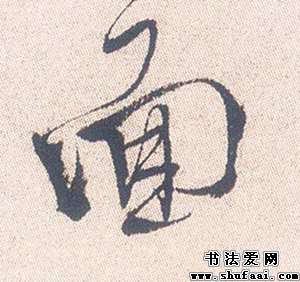 面
书法爱网
www.shufaai.com